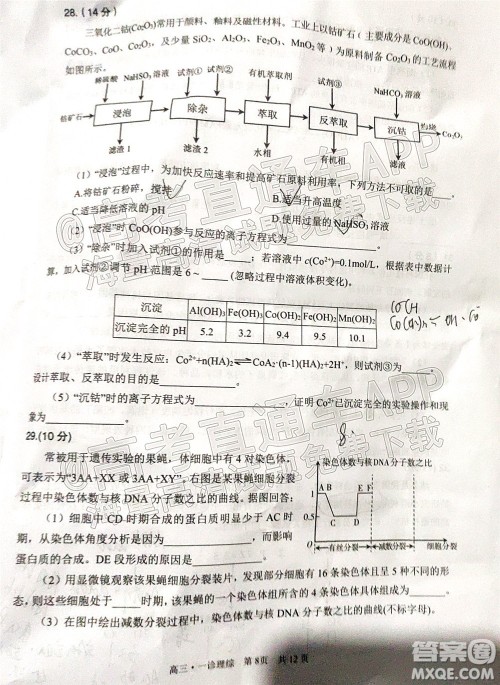 28.(14分)
三氧化二钴(Co₂O₃)常用于颜料、釉料及磁性材料，工业上以钴矿石(主要成分为CoO(OH)、
CoCO₃、CoO、Co₂O₃，及少量SiO₂、Al₂O₃、Fe₂O₃、MnO₂等)为原料制备Co₂O₃的工艺流程
如图所示。
稀硫酸 NaHSO₃溶液 试剂① 试剂② 有机萃取剂 试剂③ NaHCO₃溶液
钴矿石 浸泡 除杂 萃取 反萃取 沉钴 灼烧 Co₂O₃
滤渣1 滤渣2 水相 有机相 滤液
(1)“浸泡”过程中，为加快反应速率和提高矿石原料利用率，下列方法不可取的是
A.将钴矿石粉碎，搅拌 B.适当升高温度
C.适当降低溶液的pH D.使用过量的NaHSO₃溶液
(2)“浸泡”时CoO(OH)参与反应的离子方程式为
(3)“除杂”时加入试剂①的作用是 。若溶液中c(Co²⁺)=0.1mol/L，根据表中数据计
算，加入试剂②调节pH范围是6～ (忽略过程中溶液体积变化)。
沉淀 Al(OH)₃ Fe(OH)₃ Co(OH)₂ Fe(OH)₂ Mn(OH)₂
沉淀完全的pH 5.2 3.2 9.4 9.5 10.1
(4)“萃取”时发生反应：Co²⁺+n(HA)₂⇌CoA₂·(n-1)(HA)₂+2H⁺，则试剂③为 。
设计萃取、反萃取的目的是 。
(5)“沉钴”时的离子方程式为 ，证明Co²⁺已沉淀完全的实验操作和现
象为 。
29.(10分)
常被用于遗传实验的果蝇，体细胞中有4对染色体，
可表示为“3AA+XX或3AA+XY”。右图为果蝇分裂
过程中染色体数与核DNA分子数之比的曲线。据图回答：
染色体数与核DNA分子数之比
A B C D E F
1
0.5
0
有丝分裂 减数分裂 细胞分裂
(1)细胞中CD时期合成的蛋白质明显少于AC时
期，从染色体角度分析是因为 ，而影响
蛋白质的合成。DE段形成的原因是 。
(2)用显微镜观察该果蝇细胞分裂装片，发现部分细胞有16条染色体且呈5种不同的形
态，则这些细胞处于 时期，该果蝇的一个染色体组所含的4条染色体组成为 。
(3)在图中绘出减数分裂过程中，染色体数与核DNA分子数之比的曲线(不标字母)。
高三·一诊理综 第8页 共12页
高考直通车APP
海量高清试题免费下载
高考直通车APP
海量高清试题免费下载
答案圈